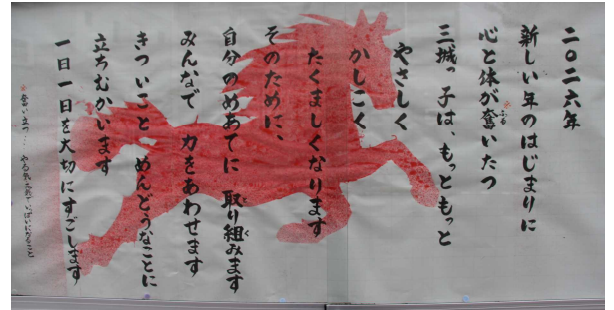 二〇二六年
新しい年のはじまりに
心と体が奮いたつ
※ふる
三城っ子は、もっともっと
やさしく
かしこく
たくましくなります
そのために、
自分のめあてに 取り組みます
く
みんなで 力をあわせます
きついこと めんどうなことに
立ちむかいます
一日一日を大切にすごします
※奮い立つ… やる気、元気でいっぱいになること